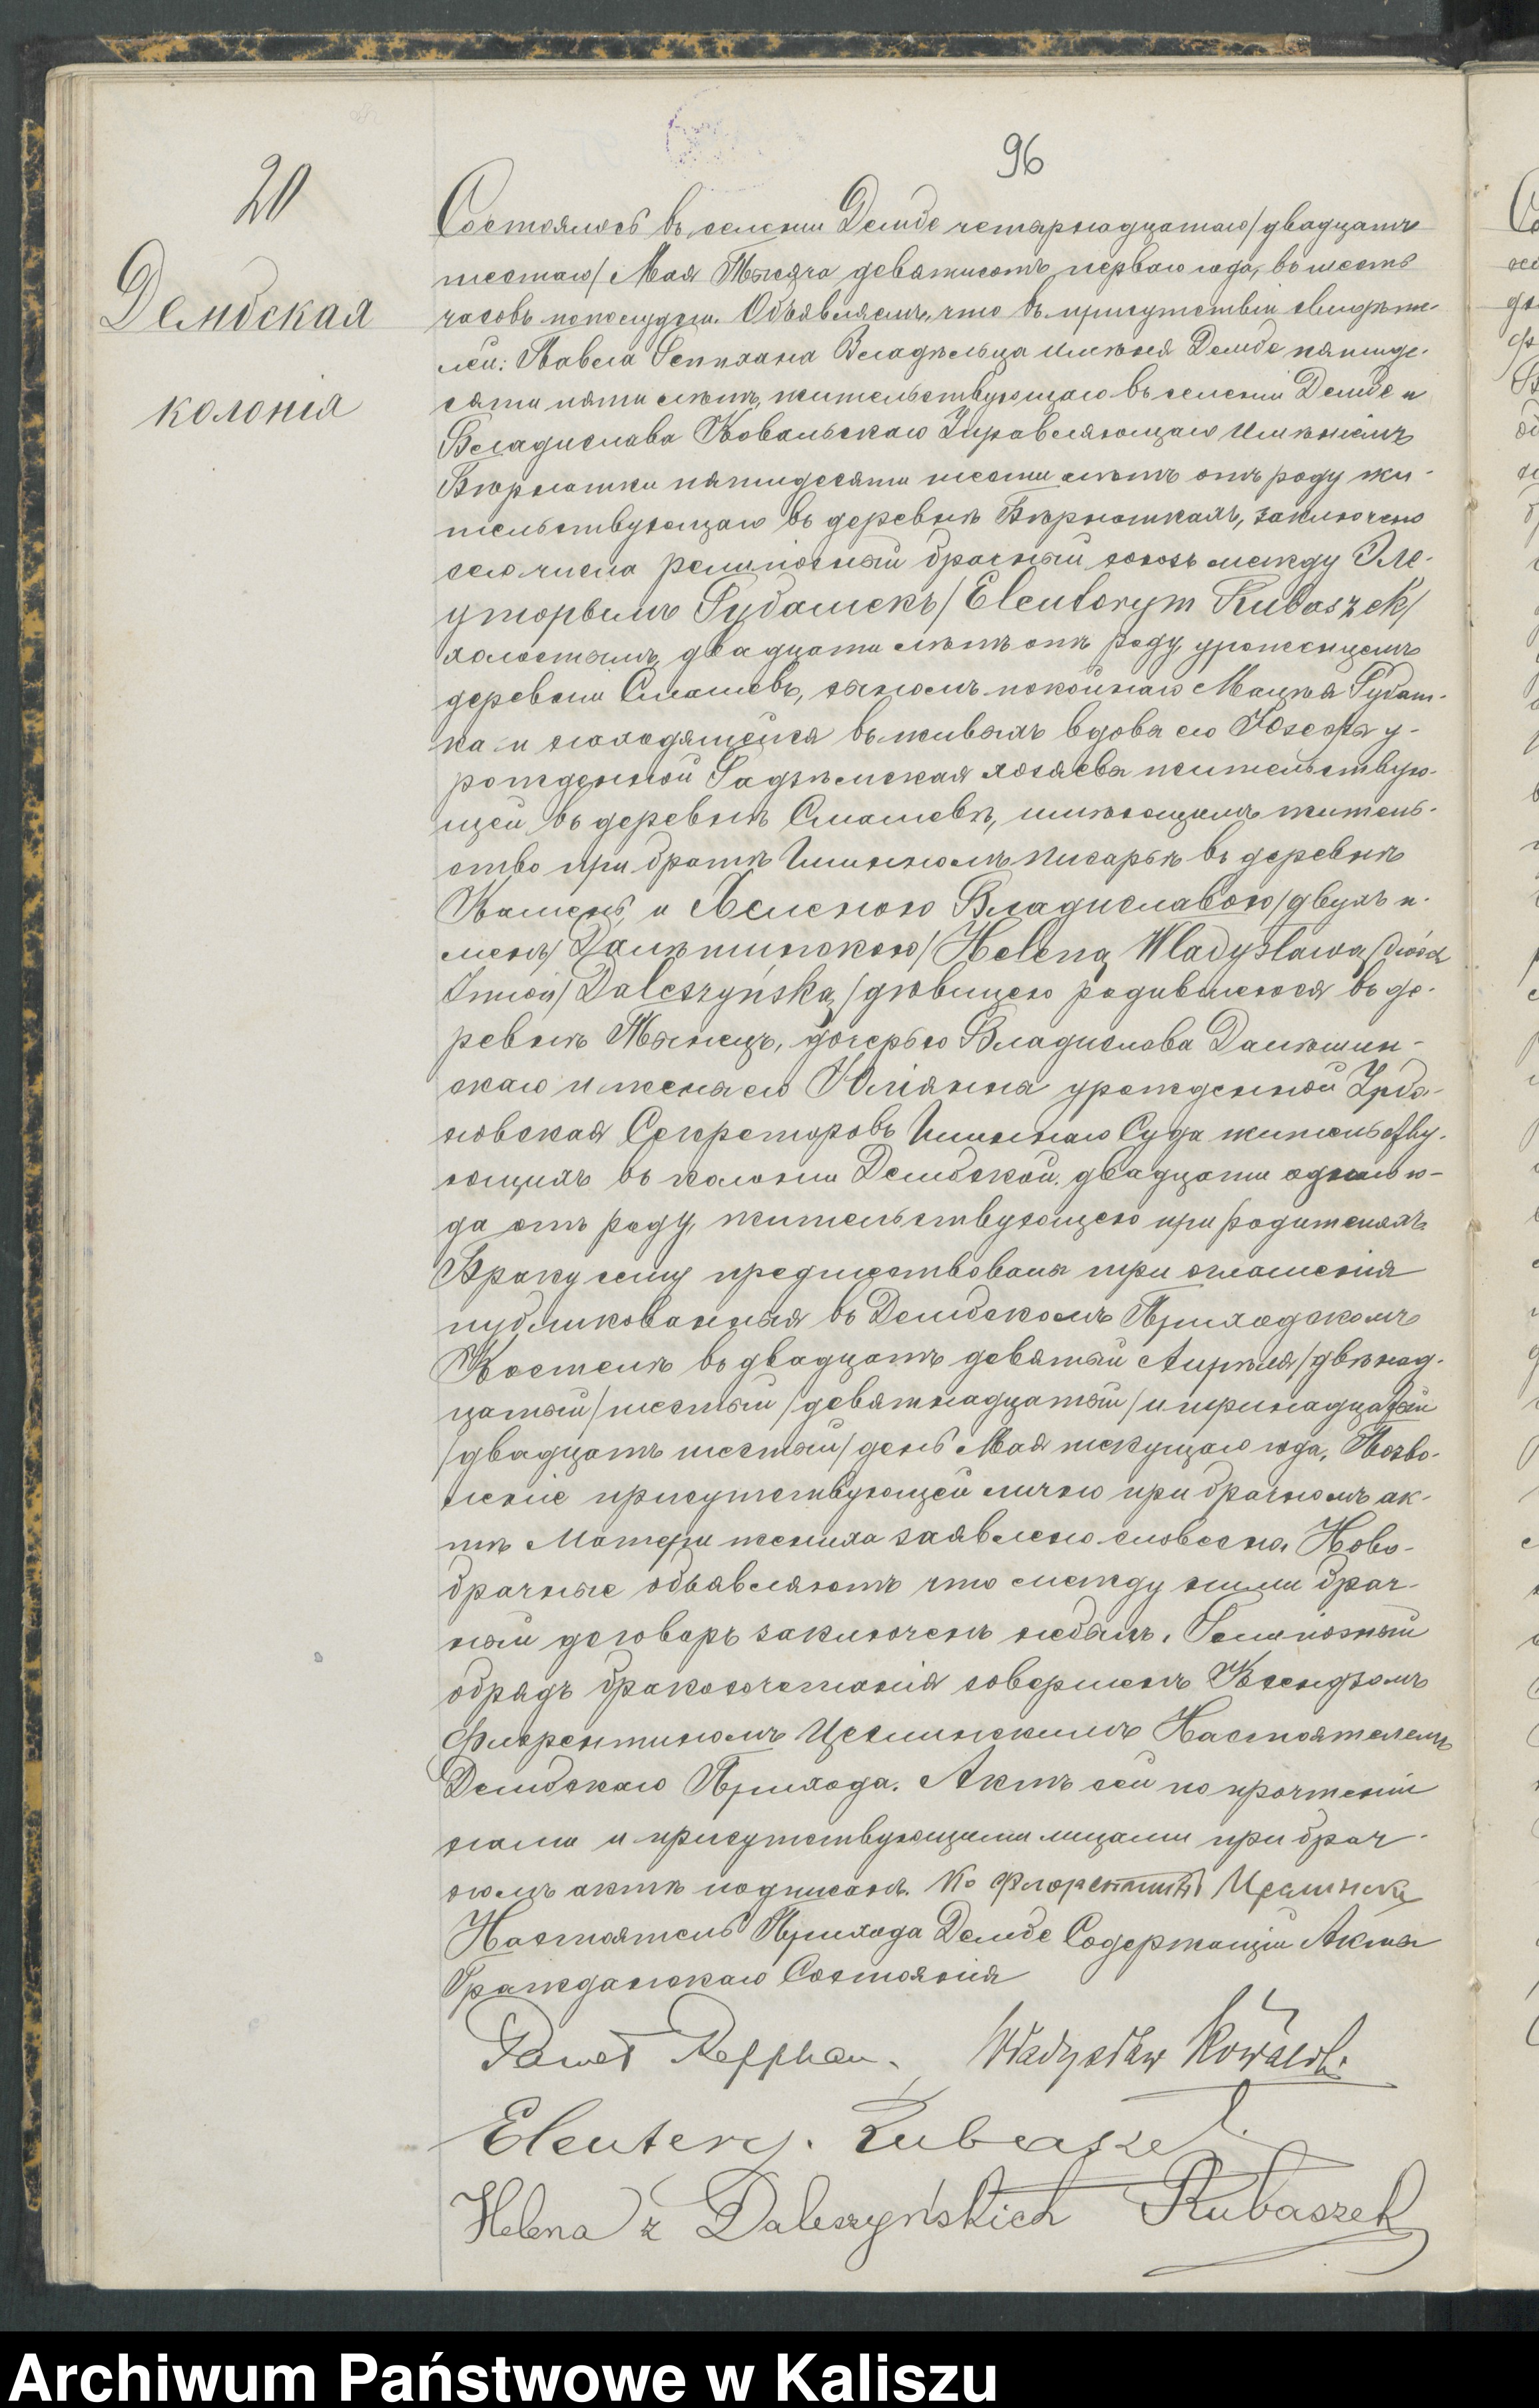 96
20
Дембская
колонія
Состоялось въ селеніи Дембе четырнадцатаго/двадцать
шестаго/ Мая Тысяча девятисотъ перваго года, въ шесть
часовъ пополудни. Объявляемъ, что въ присутствіи свидѣте-
лей: Павела Реппхана Владѣльца имѣнія Дембе пятиде-
сяти пяти лѣтъ, жительствующаго въ селеніи Дембе и
Владислава Ковальскаго Управляющаго Имѣніемъ
пятидесяти шести лѣтъ отъ роду жи-
тельствующаго въ деревнѣ заключено
сего числа религіозный брачный союзъ между Эле-
уторымъ Рубашекъ/Eleuterym Rubaszek/
холостымъ, двадцати лѣтъ отъ роду, уроженцемъ
деревни Смашевъ, сыномъ покойнаго Мацѣя Рубаш-
ка и находящейся въ живыхъ вдовы его Юзефы у-
рожденной Гадзѣмская хозяевъ жительствую-
щей въ деревнѣ Смашевѣ, имѣющимъ житель-
ство при братѣ Гминномъ писарѣ въ деревнѣ
Камень, и Хеленою Владиславою/двухъ и-
менъ/Далѣшинскою/Heleną Władysława/dwóch
Imion/Daleszyńską/дѣвицею родившеюся въ де-
ревнѣ Тынецъ, дочерью Владислава Далѣшин-
скаго и жены его Юліянна урожденной Урба-
новская Секретаровъ Гминнаго Суда жительству-
ющихъ въ колоніи Дембской. двадцати одного го-
да отъ роду, жительствующею при родителяхъ
Браку сему предшествовали три оглашенія
публикованныя въ Дембскомъ Приходскомъ
Костелѣ въ двадцать девятый Апрѣля/двѣнад-
цатый/шестый/девятнадцатый/и тринадцатый
/двадцать шестый/день Мая текущаго года. Позво-
леніе присутствующей лично при брачномъ ак-
тѣ Матери жениха заявлено словесно. Ново-
брачные объявляютъ что между ними брач-
ный договоръ заключенъ небылъ. Религіозный
обрядъ бракосочетанія совершенъ Ксендзомъ
Флорентиномъ Цеслинскимъ Настоятелемъ
Дембскаго Прихода. Актъ сей по прочтеніи
нами и присутствующими лицами при брач-
номъ актѣ подписанъ. Кс Флорентинъ Цеслинскі
Настоятель Прихода Дембе Содержащій Акты
Гражданскаго Состоянія
Paweł Repphan. Władysław Kowalsk.
Eleutery. Rubaszek
Helena z Daleszyńskich Rubaszek
Archiwum Państwowe w Kaliszu